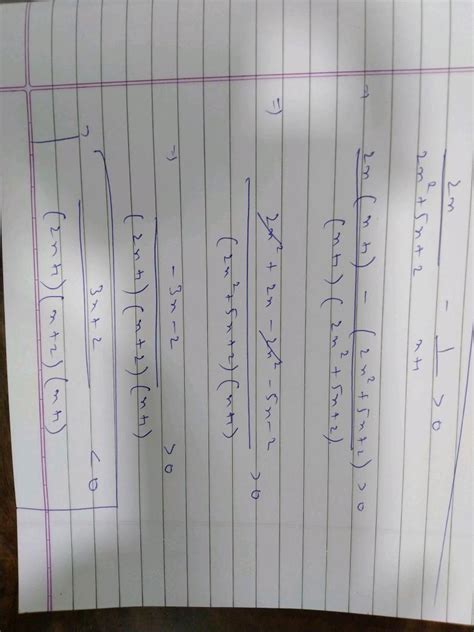 2x / 2x²+5x+2 - 1 / x+1 > 0
⇒ 2x(x+1) - (2x²+5x+2) / (x+1)(2x²+5x+2) > 0
⇒ 2x² + 2x - 2x² - 5x - 2 / (2x²+5x+2)(x+1) > 0
⇒ -3x-2 / (2x+1)(x+2)(x+1) > 0
⇒ 3x+2 / (2x+1)(x+2)(x+1) < 0